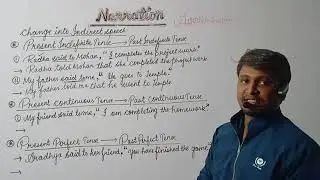 Narration
Change into Indirect speech
Present Indefinite Tense → Past Indefinite Tense
① Radha said to Mohan, "I complete the project work"
→ Radha told Mohan that she completed the project work
② My father said to me, "He goes to temple"
→ My father told me that he went to temple
Present Continuous Tense → Past Continuous Tense
① My friend said to me, "I am completing the homework."
→
Present Perfect Tense → Past Perfect Tense
① said to her friend, "You have finished the game"
→